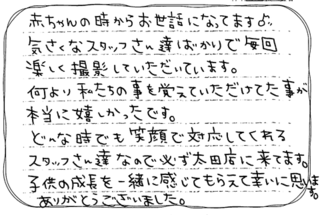 赤ちゃんの時からお世話になってます♪。
気さくなスタッフさん達ばかりで毎回
楽しく撮影していただいています。
何より私たちの事を覚えていただけてた事が
本当に嬉しかったです。
どんな時でも笑顔で対応してくれる
スタッフさん達なので必ず太田店に来てます。
子供の成長を一緒に感じてもらえて幸いに思います。
ありがとうございました。